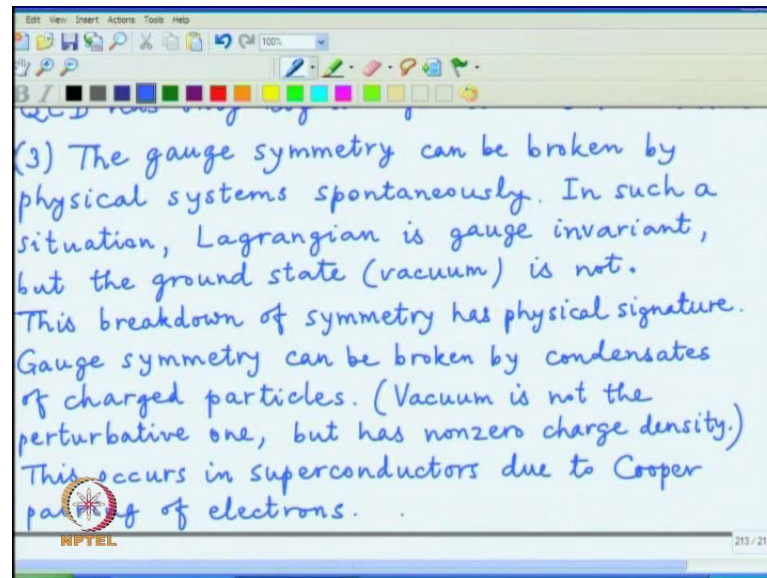 Edit View Insert Actions Tools Help
100%
B I
(3) The gauge symmetry can be broken by
physical systems spontaneously. In such a
situation, Lagrangian is gauge invariant,
but the ground state (vacuum) is not.
This breakdown of symmetry has physical signature.
Gauge symmetry can be broken by condensates
of charged particles. (Vacuum is not the
perturbative one, but has nonzero charge density.)
This occurs in superconductors due to Cooper
pairing of electrons.
NPTEL
213/21